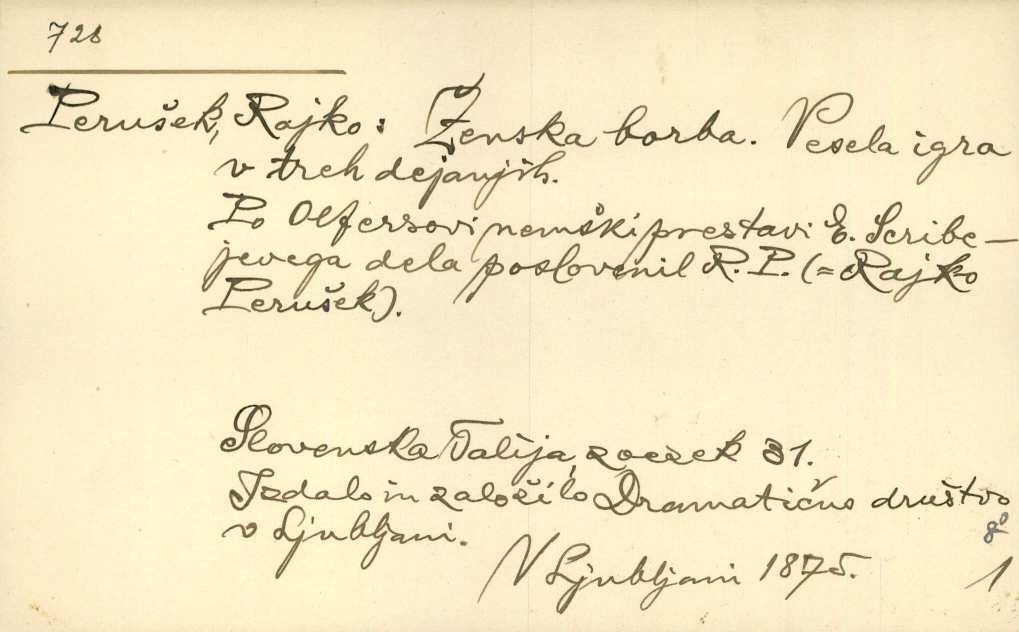 728
Perušek, Rajko: Ženska borba. Vesela igra
v treh dejanjih.
Po Olfersovi nemški prestavi E. Scribe-
jevega dela poslovenil R. P. (= Rajko
Perušek).
Slovenska Talija, zvezek 31.
Izdalo in založilo Dramatično društvo
v Ljubljani.
8°
V Ljubljani 1875.
1